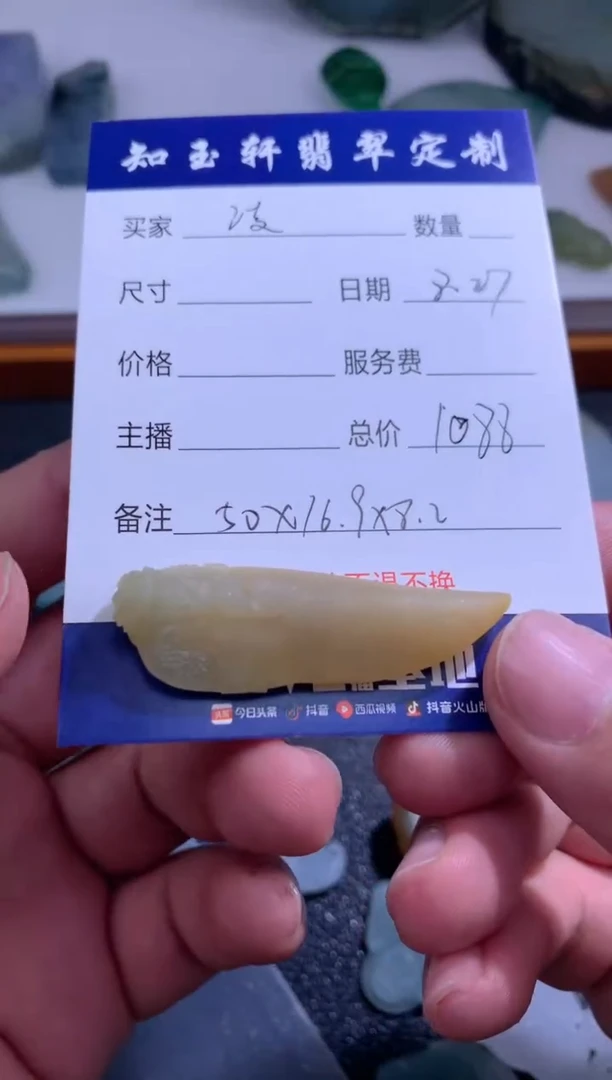 知玉轩翡翠定制
买家 凌 数量
尺寸 日期 8.27
价格 服务费
主播 总价 1088
备注 50X16.9X8.2
不退不换
基地
今日头条 抖音 西瓜视频 抖音火山版